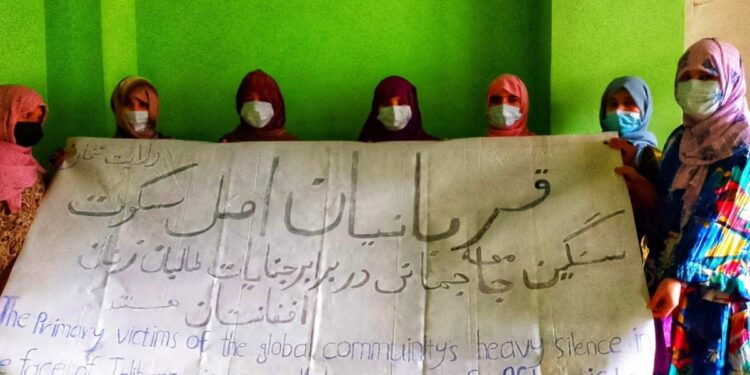 ولایت تخار
قربانیان اصلی سکوت
سنگین جامعه جهانی در برابر جنایات طالبان زنان
افغانستان هستند
The Primary victims of the global community's heavy silence in
face of